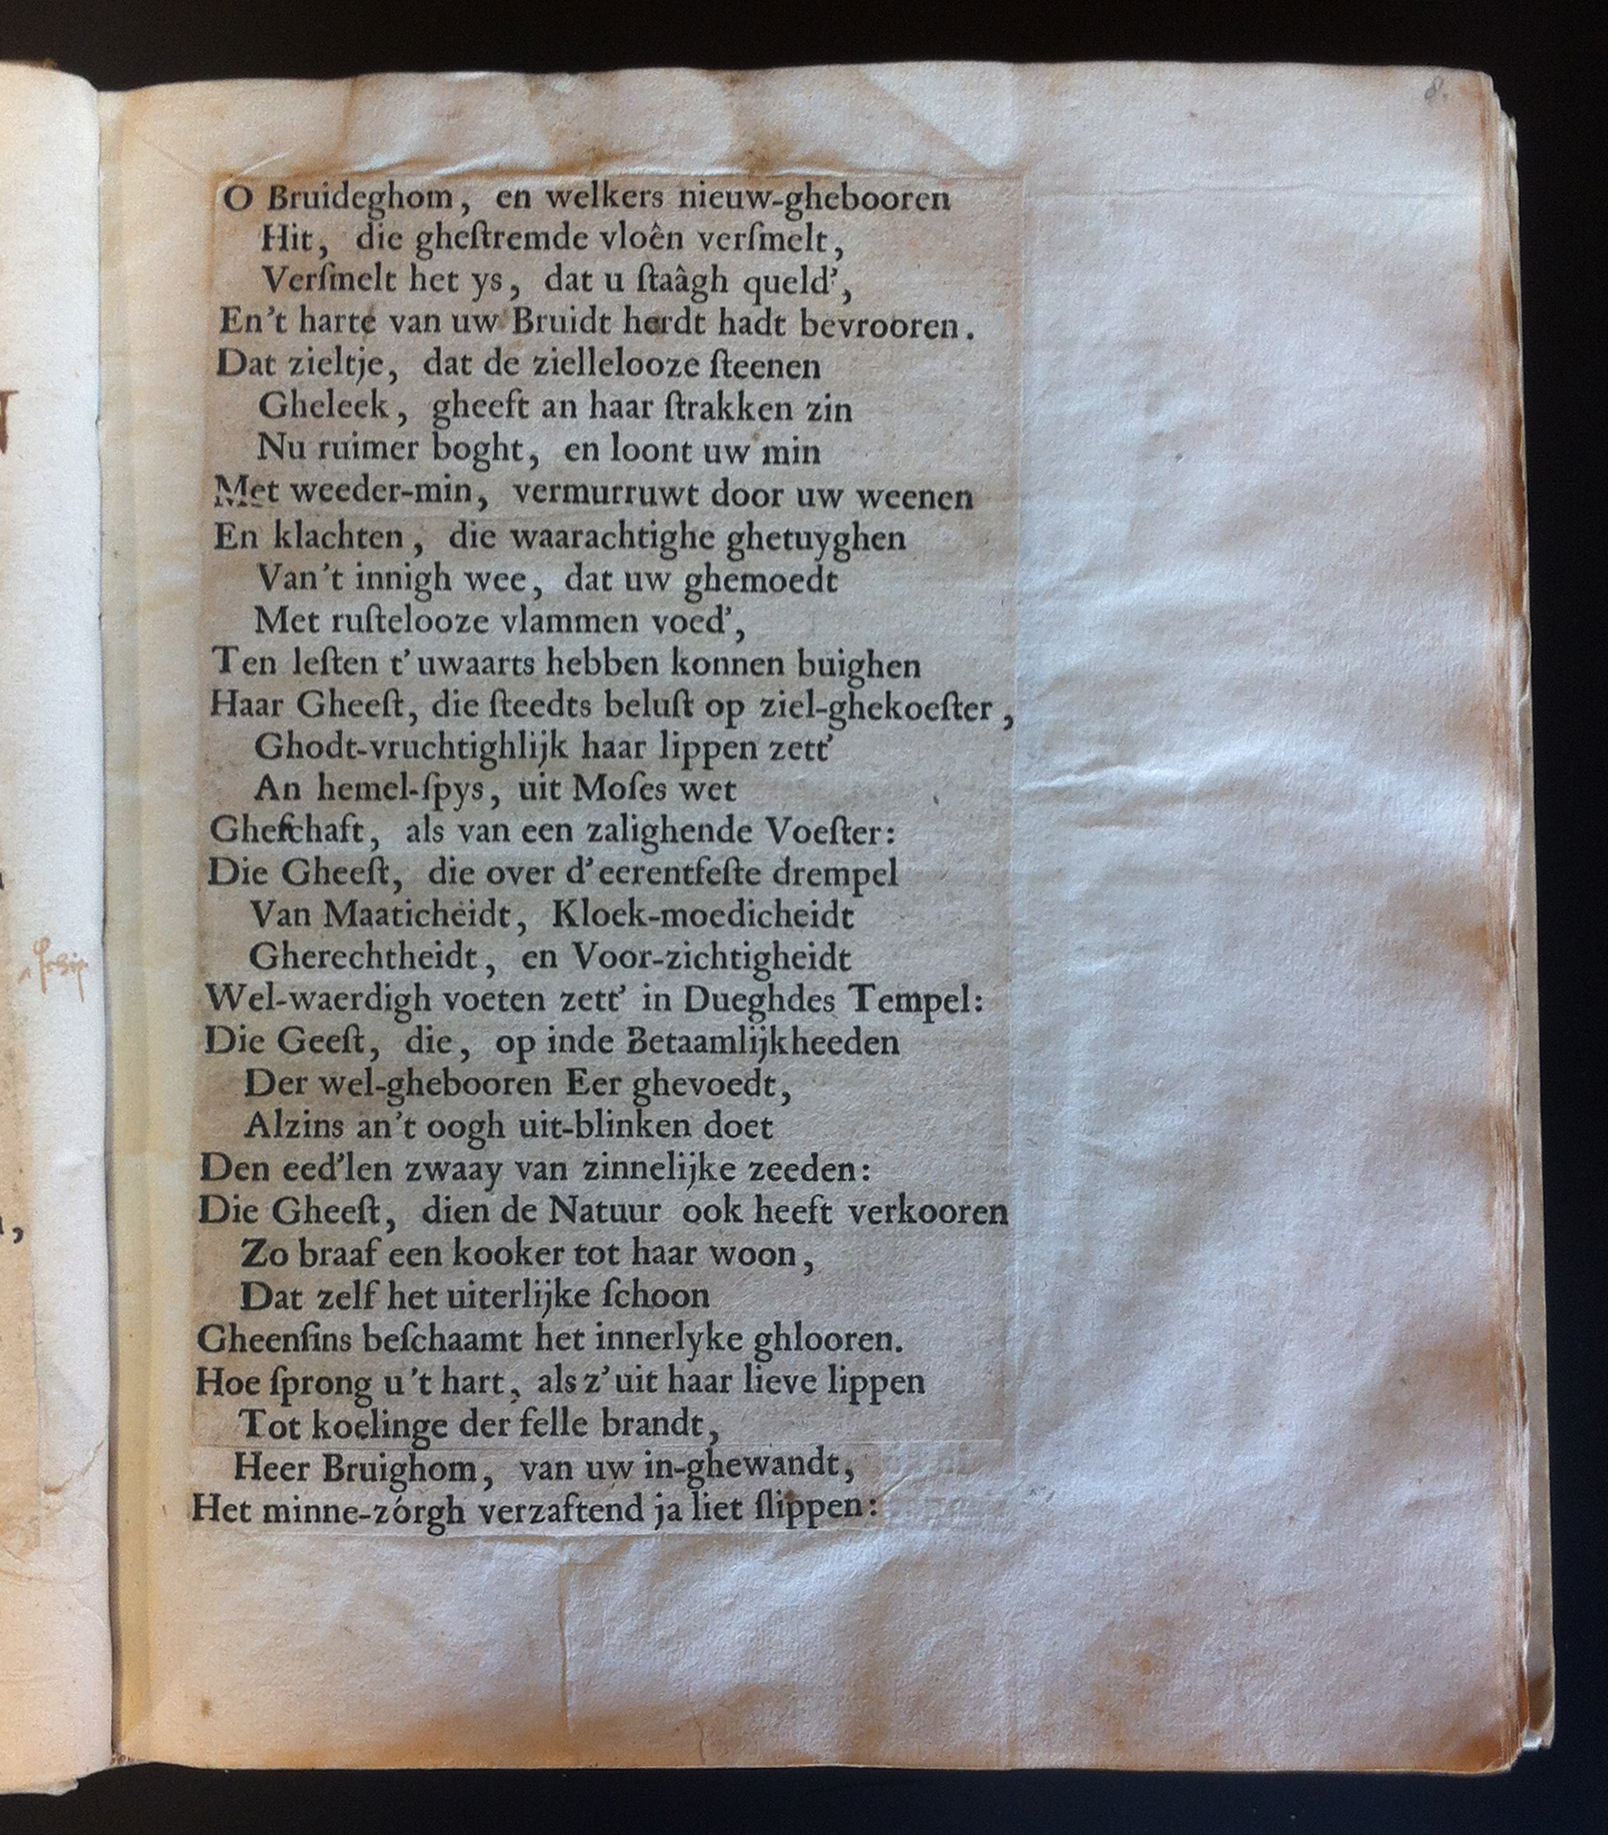 8.
O Bruideghom, en welkers nieuw-ghebooren
Hit, die gheſtremde vloên verſmelt,
Verſmelt het ys, dat u ſtaâgh queld',
En't harte van uw Bruidt herdt hadt bevrooren.
Dat zieltje, dat de ziellelooze ſteenen
Gheleek, gheeft an haar ſtrakken zin
Nu ruimer boght, en loont uw min
Met weeder-min, vermurruwt door uw weenen
En klachten, die waarachtighe ghetuyghen
Van't innigh wee, dat uw ghemoedt
Met ruſtelooze vlammen voed',
Ten leſten t'uwaarts hebben konnen buighen
Haar Gheeſt, die ſteedts beluſt op ziel-ghekoeſter,
Ghodt-vruchtighlijk haar lippen zett'
An hemel-ſpys, uit Moſes wet
Gheſchaft, als van een zalighende Voeſter:
Die Gheeſt, die over d'eerentfeſte drempel
Van Maaticheidt, Kloek-moedicheidt
Gherechtheidt, en Voor-zichtigheidt
Wel-waerdigh voeten zett' in Dueghdes Tempel:
Die Geeſt, die, op inde Betaamlijkheeden
Der wel-ghebooren Eer ghevoedt,
Alzins an't oogh uit-blinken doet
Den eed'len zwaay van zinnelijke zeeden:
Die Gheeſt, dien de Natuur ook heeft verkooren
Zo braaf een kooker tot haar woon,
Dat zelf het uiterlijke ſchoon
Gheenſins beſchaamt het innerlyke ghlooren.
Hoe ſprong u't hart, als z'uit haar lieve lippen
Tot koelinge der felle brandt,
Heer Bruighom, van uw in-ghewandt,
Het minne-zórgh verzaftend ja liet ſlippen: